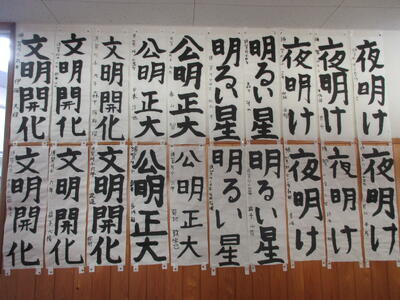 夜明け
夜明け
夜明け
明るい星
明るい星
公明正大
公明正大
文明開化
文明開化
文明開化
夜明け
夜明け
夜明け
明るい星
明るい星
公明正大
公明正大
文明開化
文明開化
文明開化